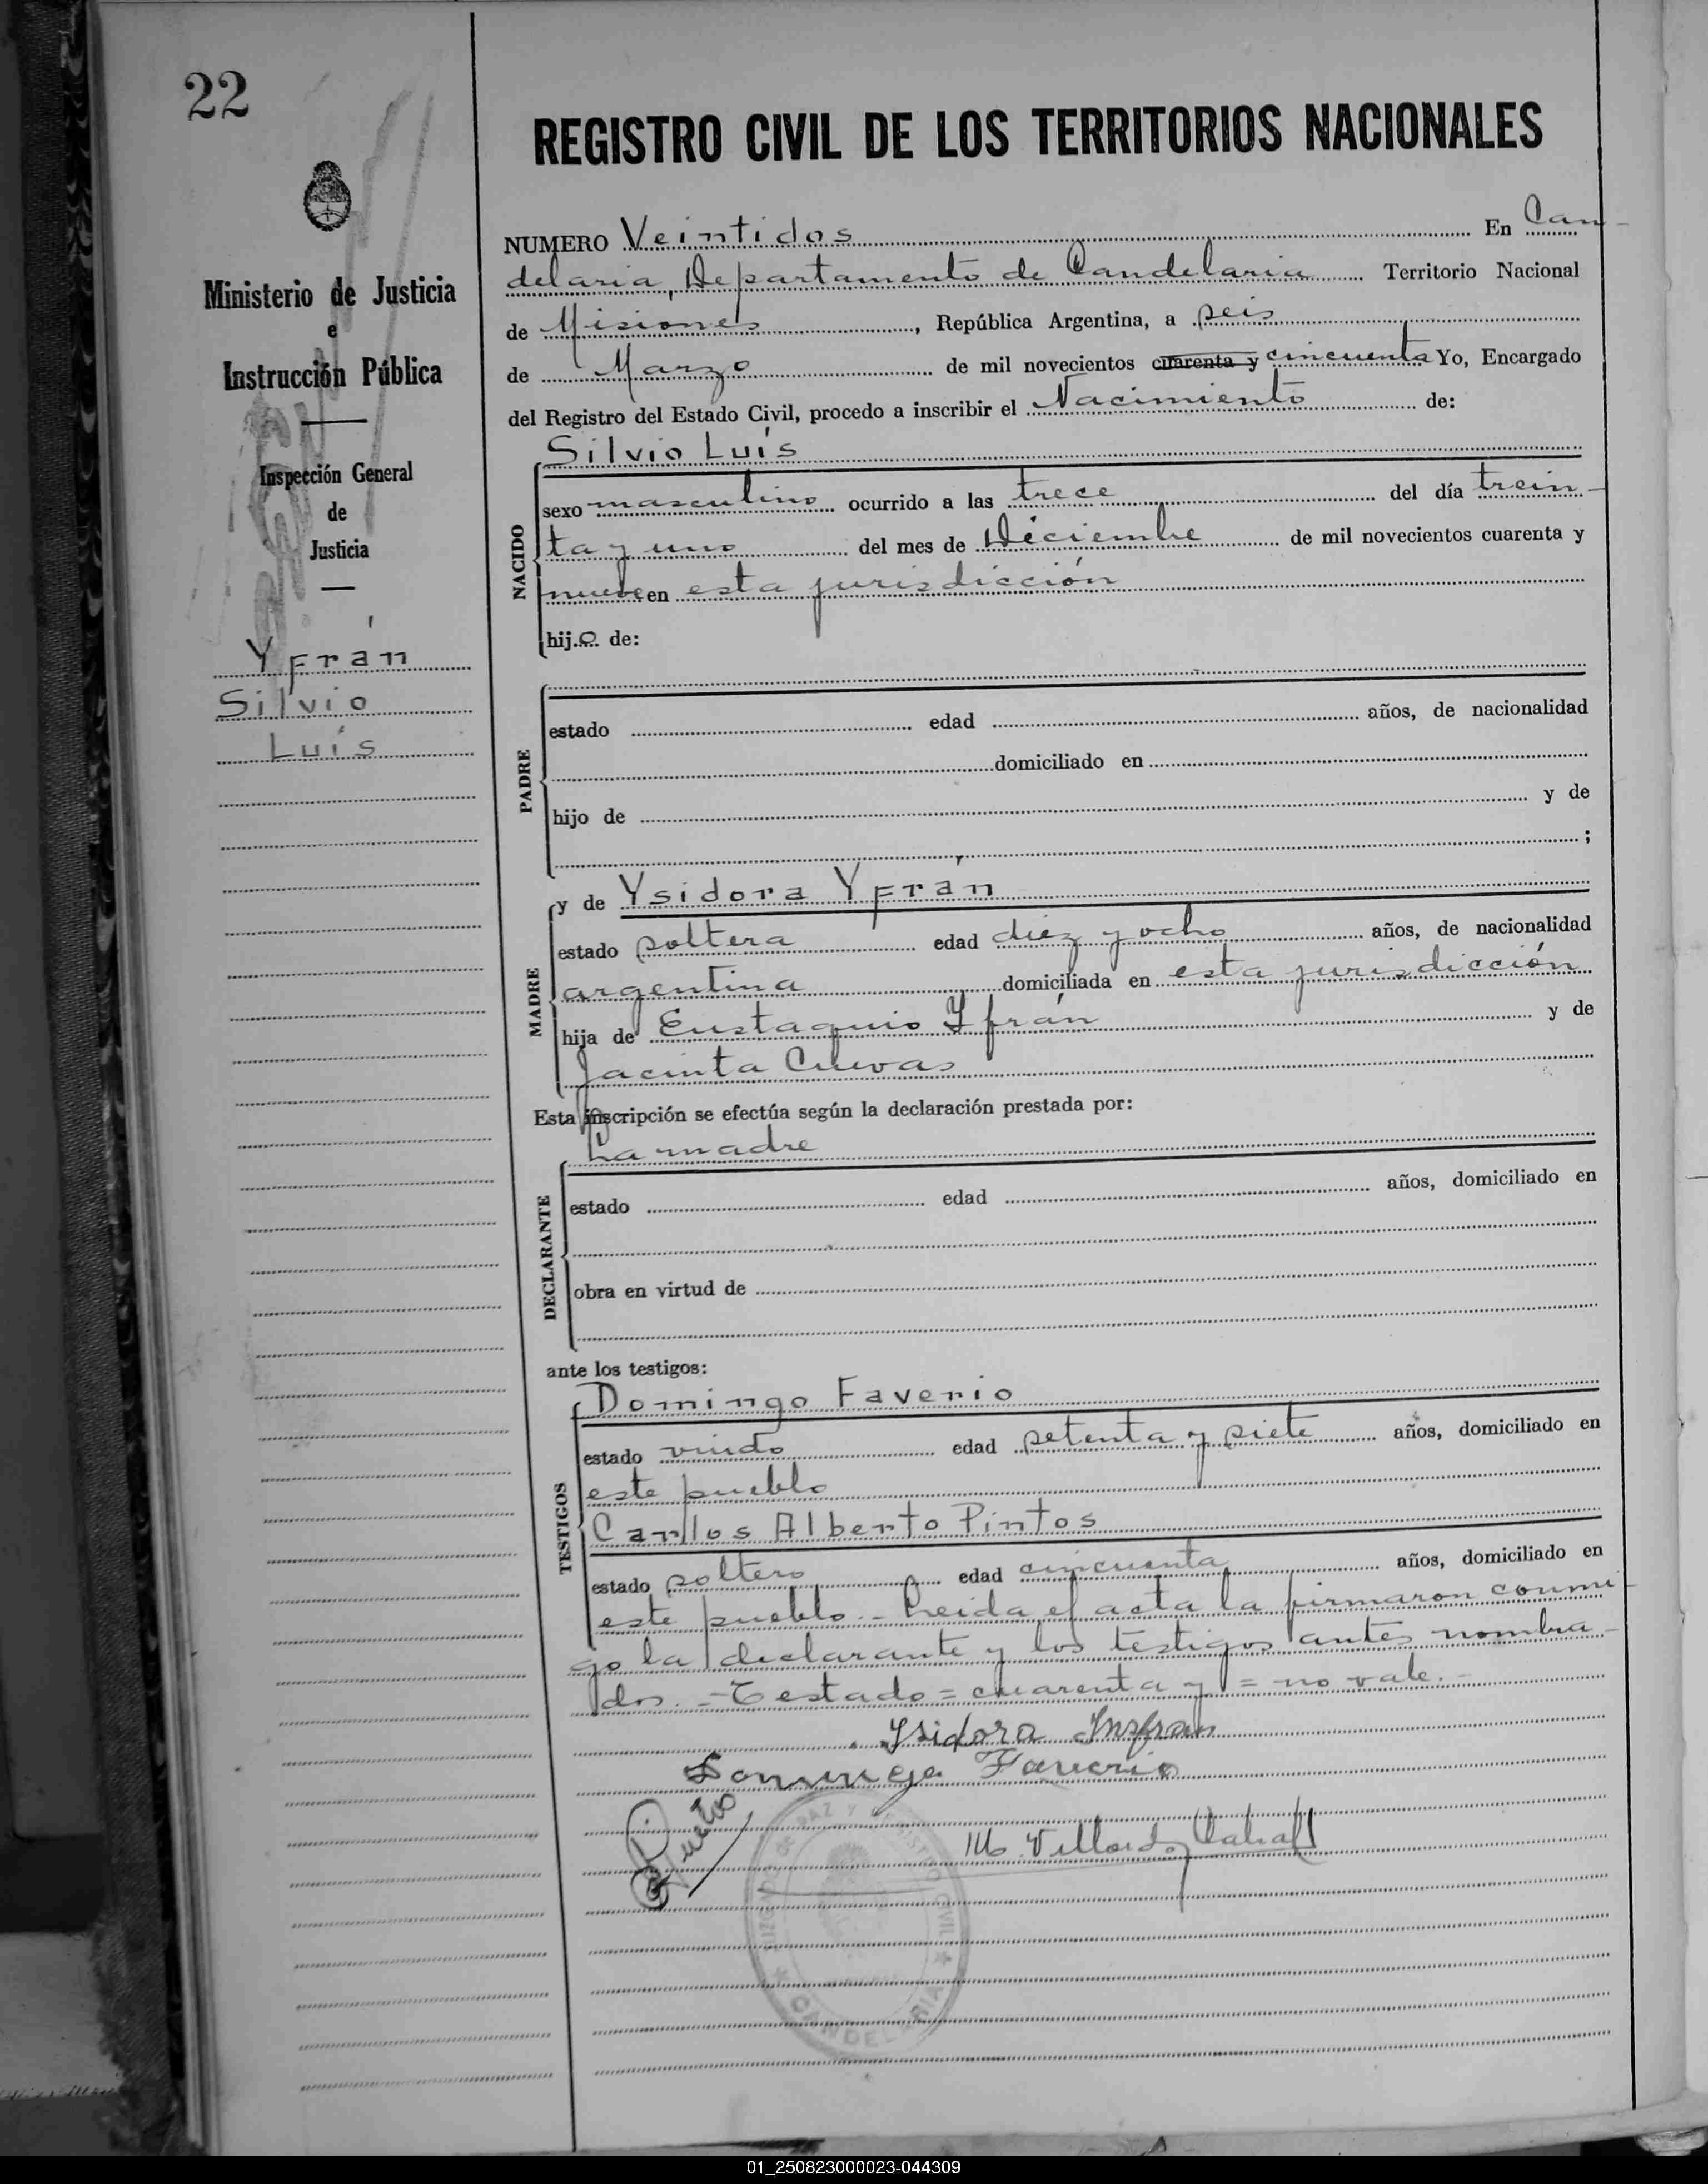 22
Ministerio de Justicia
e
Instrucción Pública
Inspección General
de
Justicia
Yfrán
Silvio
Luís
REGISTRO CIVIL DE LOS TERRITORIOS NACIONALES
NUMERO Veintidos En Can-
delaria, Departamento de Candelaria Territorio Nacional
de Misiones, República Argentina, a seis
de Marzo de mil novecientos cuarenta y cincuenta Yo, Encargado
del Registro del Estado Civil, procedo a inscribir el Nacimiento de:
Silvio Luís
NACIDO
sexo masculino ocurrido a las trece del día trein-
ta y uno del mes de Diciembre de mil novecientos cuarenta y
nueve en esta jurisdicción
hijo de:
PADRE
estado edad años, de nacionalidad
domiciliado en
hijo de y de
;
MADRE
y de Ysidora Yfrán
estado soltera edad diez y ocho años, de nacionalidad
argentina domiciliada en esta jurisdicción
hija de Eustaquio Yfrán y de
Jacinta Cuevas
Esta inscripción se efectúa según la declaración prestada por:
La madre
DECLARANTE
estado edad años, domiciliado en
obra en virtud de
ante los testigos:
TESTIGOS
Domingo Faverio
estado viudo edad setenta y siete años, domiciliado en
este pueblo
Carlos Alberto Pintos
estado soltero edad cincuenta años, domiciliado en
este pueblo.- Leida el acta la firmaron conmi-
go la declarante y los testigos antes nombra-
dos.=Testado=cuarenta y=no vale.-
Ysidora Insfran
Domingo Faverio
JUZGADO DE PAZ Y REGISTRO CIVIL
CANDELARIA
01_250823000023-044309